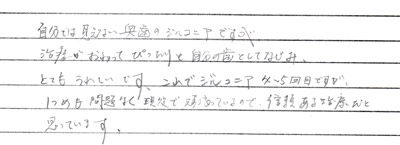 自分では見えない奥歯のジルコニアですが
治療がおわってぴったりと自分の歯としてなじみ、
とてもうれしいです。これでジルコニア4〜5回目ですが、
1つめも問題なく現在で頑張っているので、信頼ある治療だと
思っています。